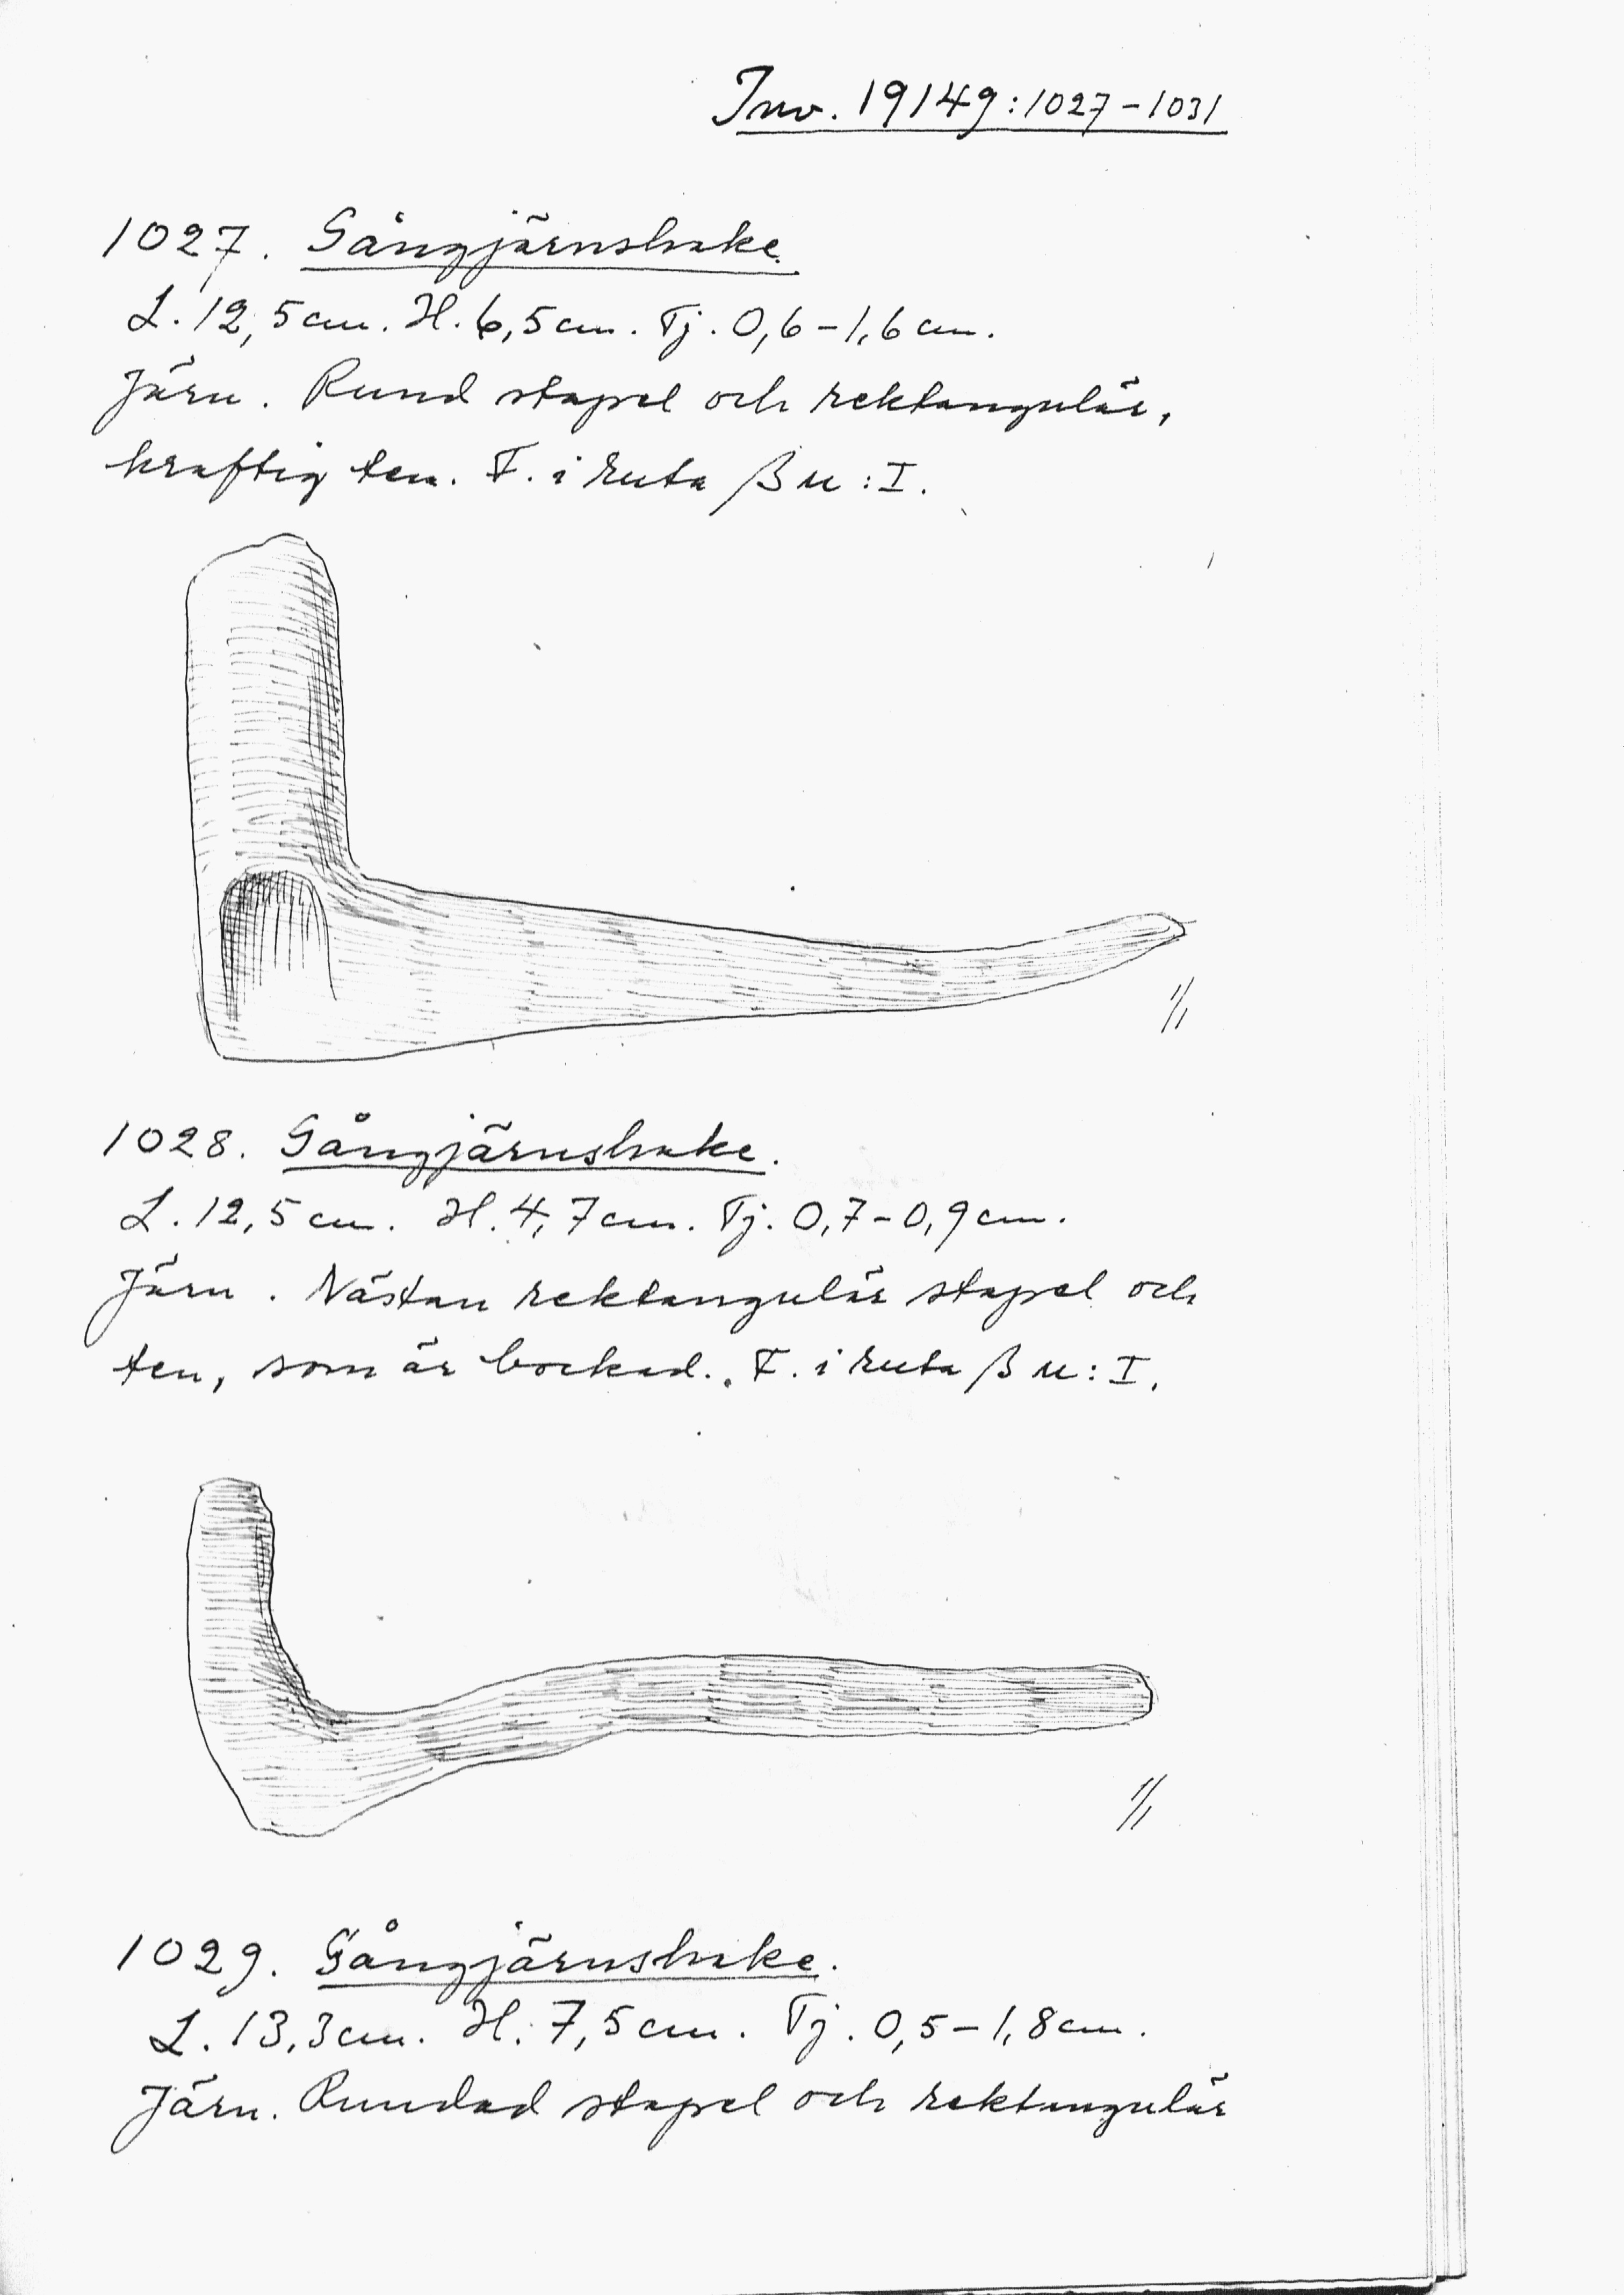 Inv. 19149:1027-1031
1027. Gångjärnshake.
L. 12,5 cm. H. 6,5 cm. Tj. 0,6-1,6 cm.
Järn. Rund stapel och rektangulär,
kraftig ten. F. i ruta β u : I.
1/1
1028. Gångjärnshake.
L. 12,5 cm. H. 4,7 cm. Tj. 0,7-0,9 cm.
Järn. Nästan rektangulär stapel och
ten, som är bockad. F. i ruta β u : I.
1/1
1029. Gångjärnshake.
L. 13,3 cm. H. 7,5 cm. Tj. 0,5-1,8 cm.
Järn. Rundad stapel och rektangulär